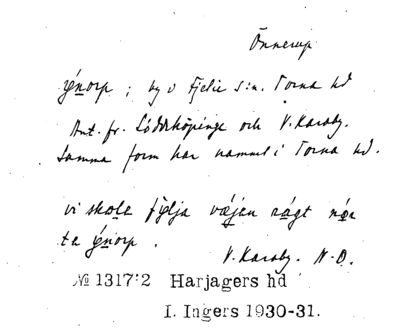 Önnerup
y̌norp ; by i Fjelie s:n. Torna hd
Ant. fr. Löddeköpinge och V. Karaby.
Samma form har namnet i Torna hd.
vi skola fylja väjen rágt nǫr
te y̌norp .
V. Karaby. N-O.
№ 1317:2 Harjagers hd
I. Ingers 1930-31.